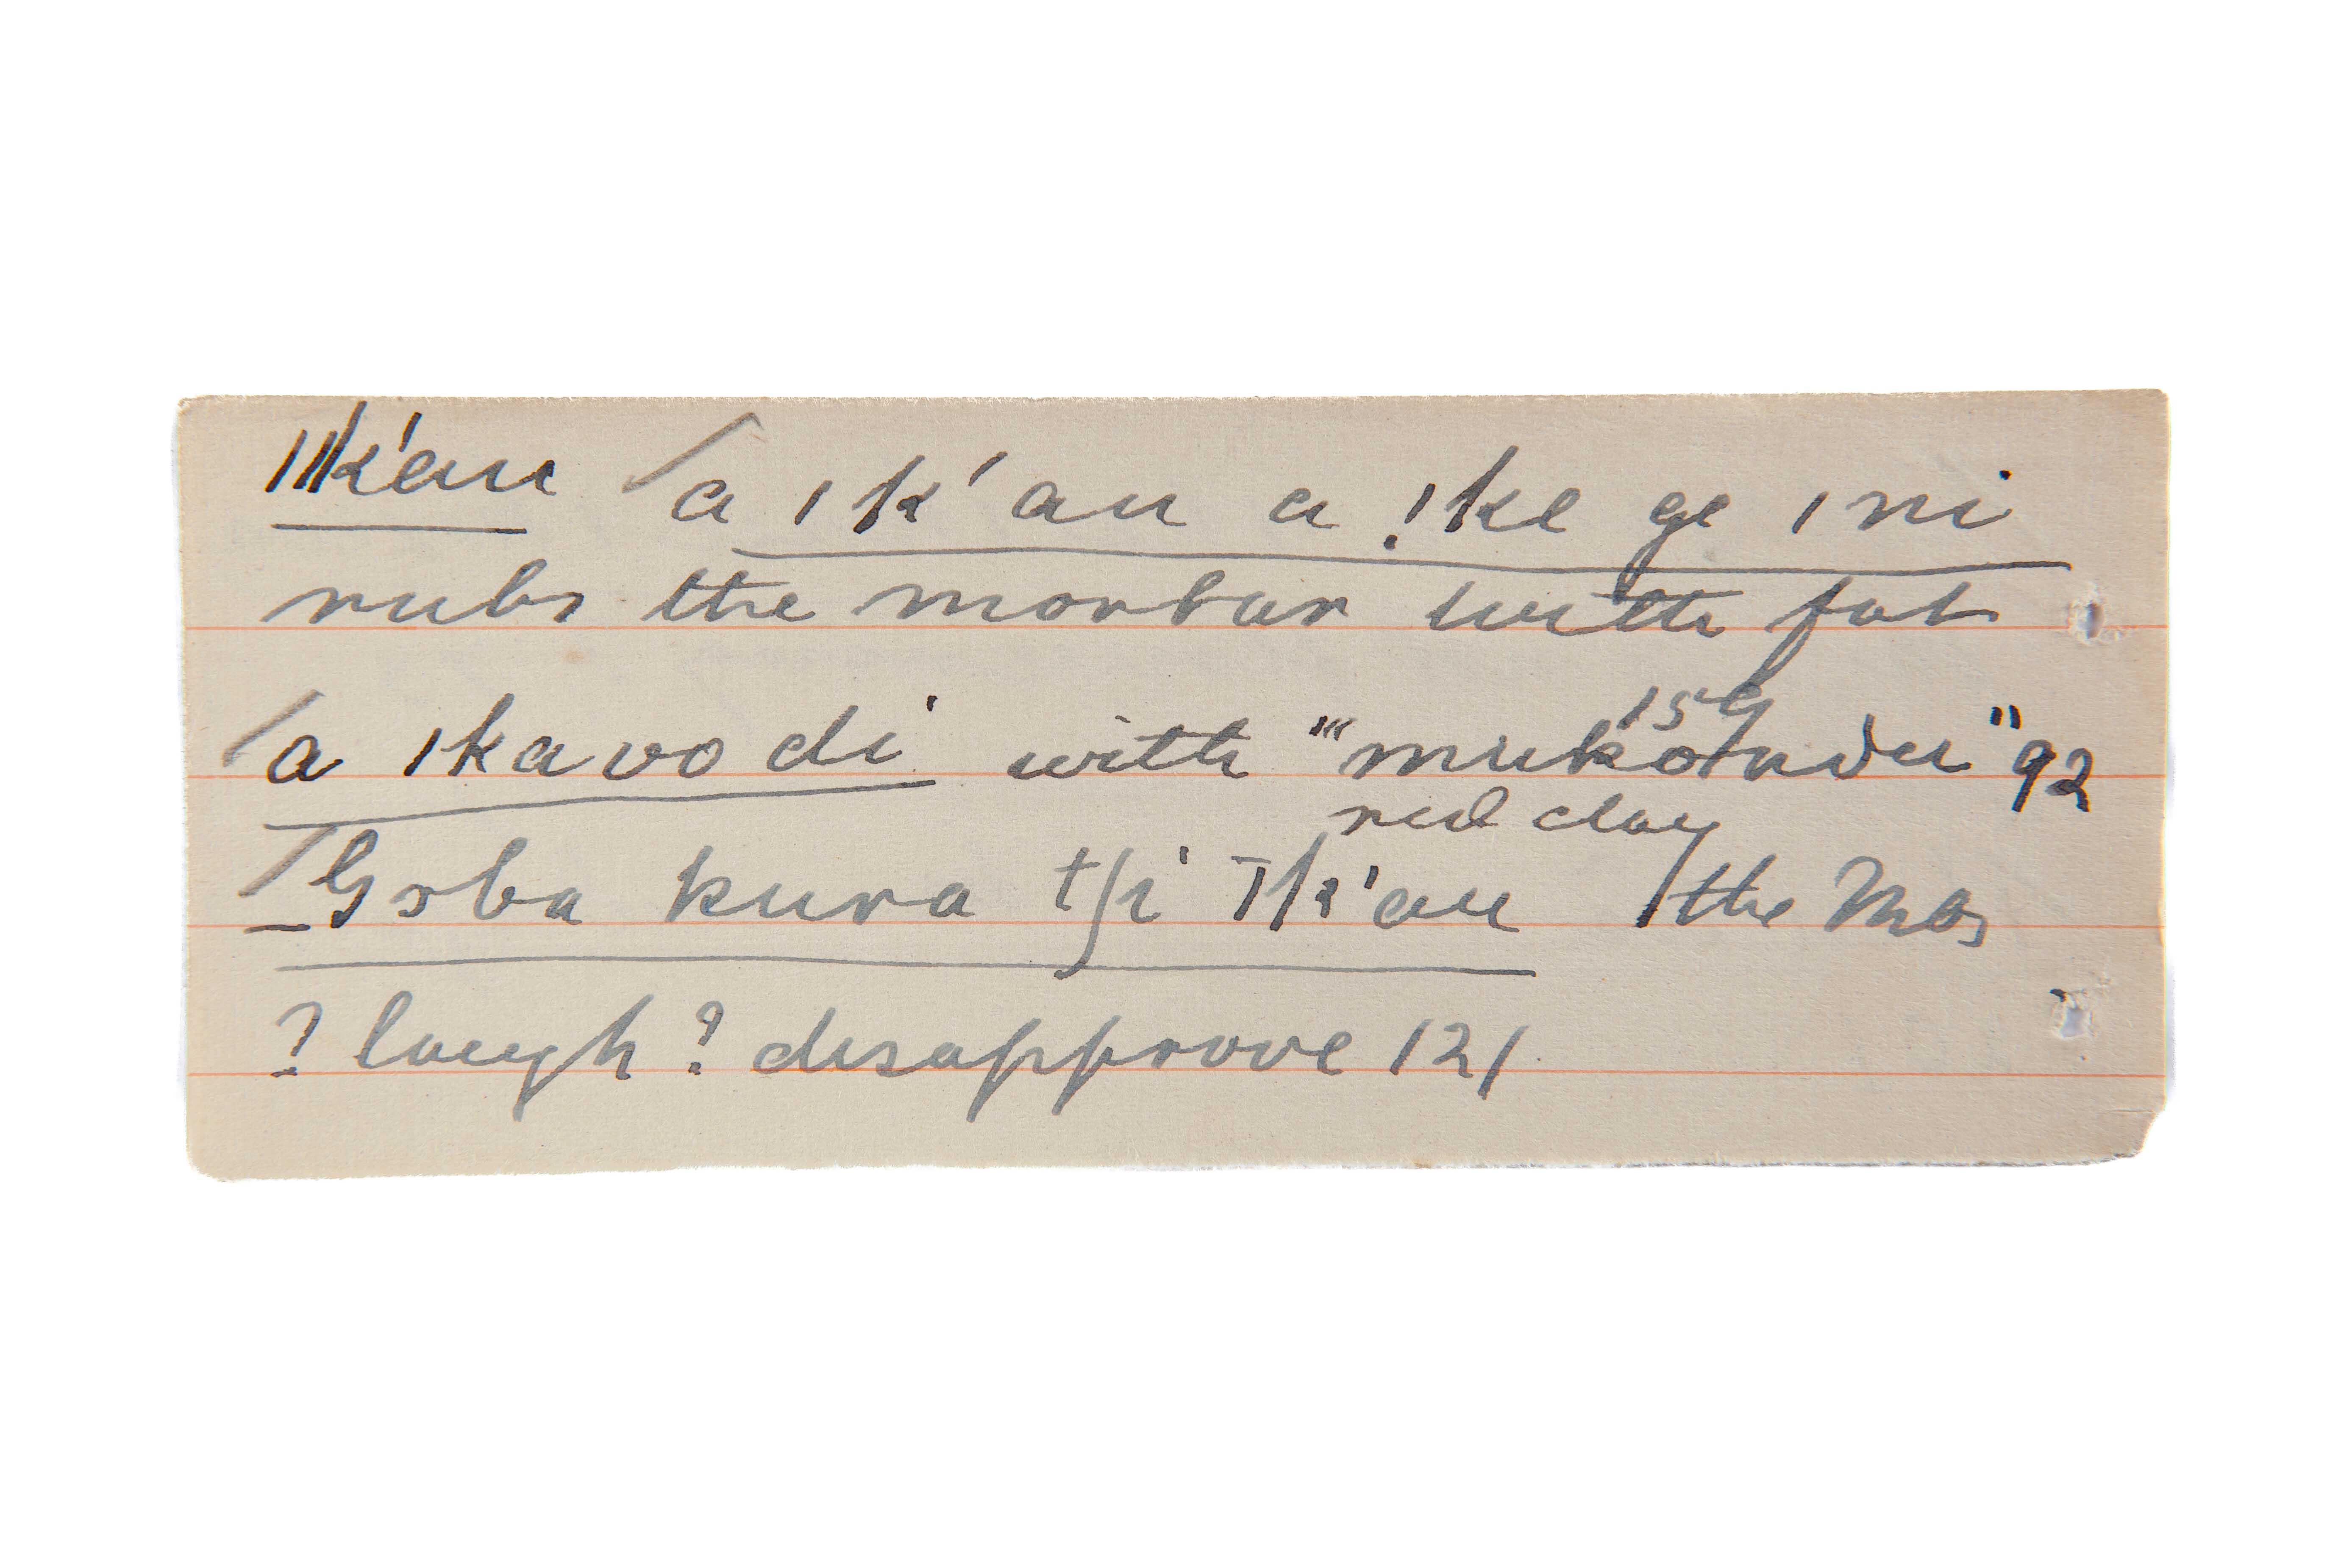 ǀǁk'au a ǀk'au a !ke ge ǀni
rubs the mortar with fat
159
a ǀkavo di with "mukondu" 92
red clay
Goba kura tʃi ǀk'au the Mos
? laugh ? disapprove 121